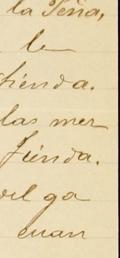 la Peña,
le
tienda.
las mer
tienda.
del ga
cuan